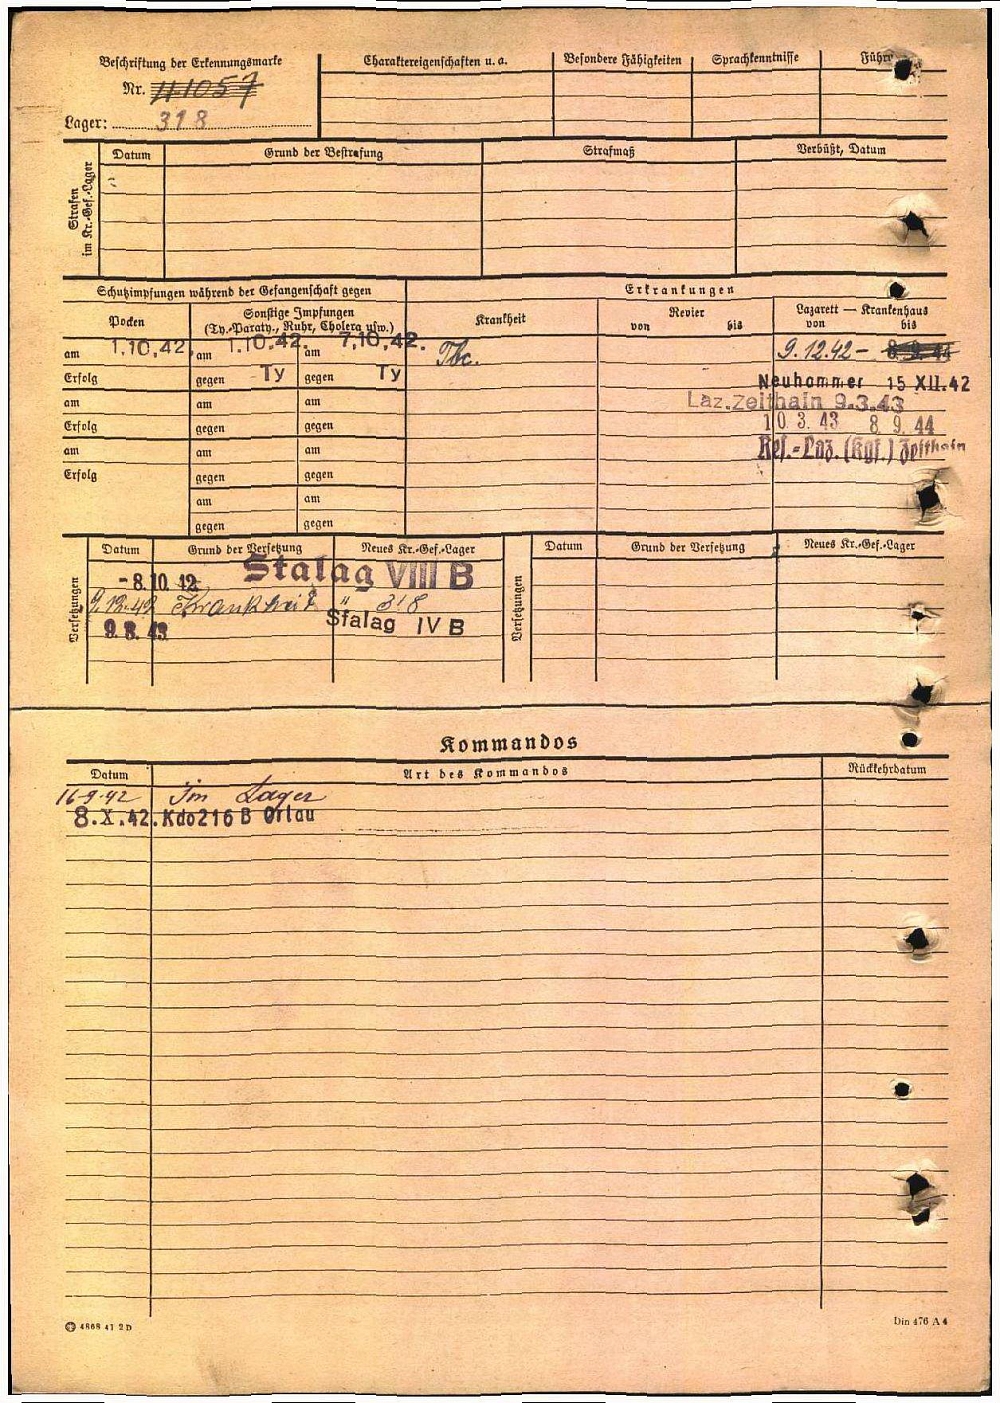 Beschriftung der Erkennungsmarke
Nr. 41057
Lager: 318
Charaktereigenschaften u. a.
Besondere Fähigkeiten
Sprachkenntnisse
Strafen im Kr.-Gef.-Lager
Datum
Grund der Bestrafung
Strafmaß
Verbüßt, Datum
Schutzimpfungen während der Gefangenschaft gegen
Erkrankungen
Pocken
Sonstige Impfungen
(Ty.-Paraty., Ruhr, Cholera usw.)
Krankheit
Revier
von bis
Lazarett — Krankenhaus
von bis
am 1.10.42. am 1.10.42. am 7.10.42. Tbc. 9.12.42 – 8 9. 44
Erfolg gegen Ty gegen Ty Neuhammer 15 XII. 42
am am am Laz. Zeithain 9.3.43
Erfolg gegen gegen 10 3. 43 8 9. 44
am am am Res.-Laz. (Kgf.) Zeithain
Erfolg gegen gegen
am am
gegen gegen
Versetzungen
Datum Grund der Versetzung Neues Kr.-Gef.-Lager
-8. 10. 42 Stalag VIII B
9.12.42 Krankheit " 318
9. 3. 43 Stalag IV B
Versetzungen
Datum Grund der Versetzung Neues Kr.-Gef.-Lager
Kommandos
Datum Art des Kommandos Rückkehrdatum
16.9.42 Im Lager
8. X. 42. Kdo 216 B Orlau
4868 41 2 D
Din 476 A 4